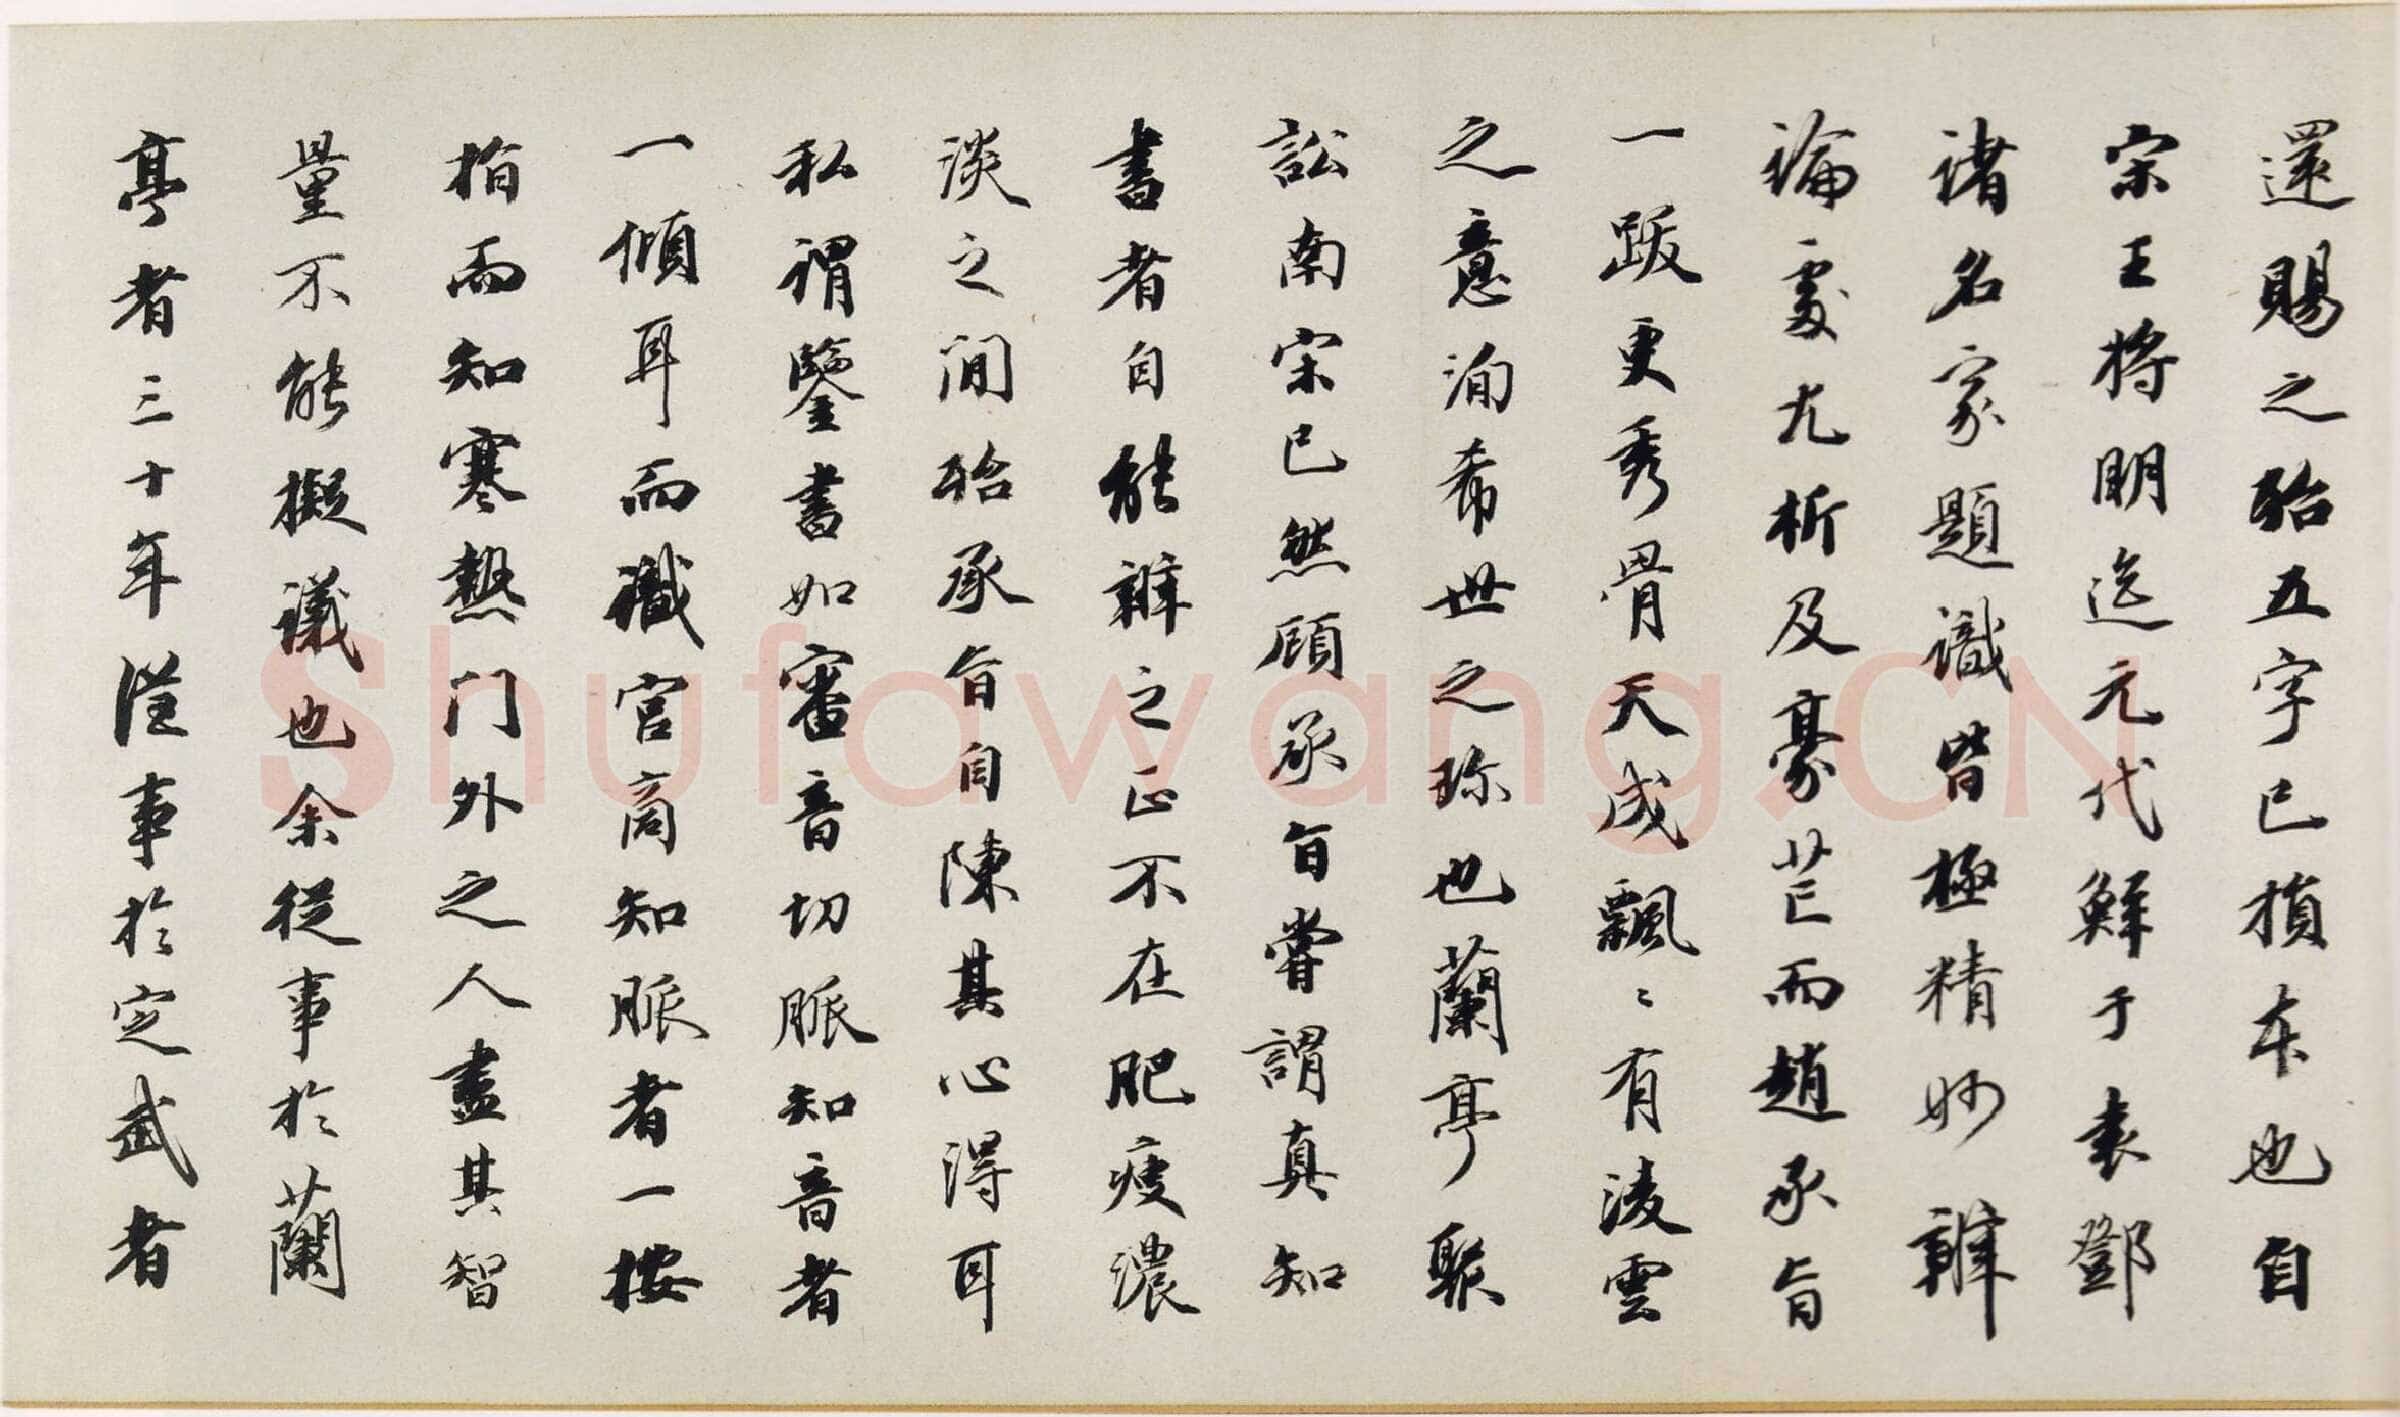 還賜之殆五字已損本也自
宋王將明迄元代鮮于袁鄧
諸名家題識皆極精妙辨
論處尤析及豪芒而趙承旨
一跋更秀骨天成飄〻有凌雲
之意洵希世之珍也蘭亭聚
訟南宋已然顧承旨嘗謂真知
書者自能辨之正不在肥瘦濃
淡之間殆承旨自陳其心得耳
私謂鑒書如審音切脈知音者
一傾耳而識宮商知脈者一按
指而知寒熱门外之人盡其智
量不能擬議也余從事於蘭
亭者三十年從事於定武者
Shufawang.CN